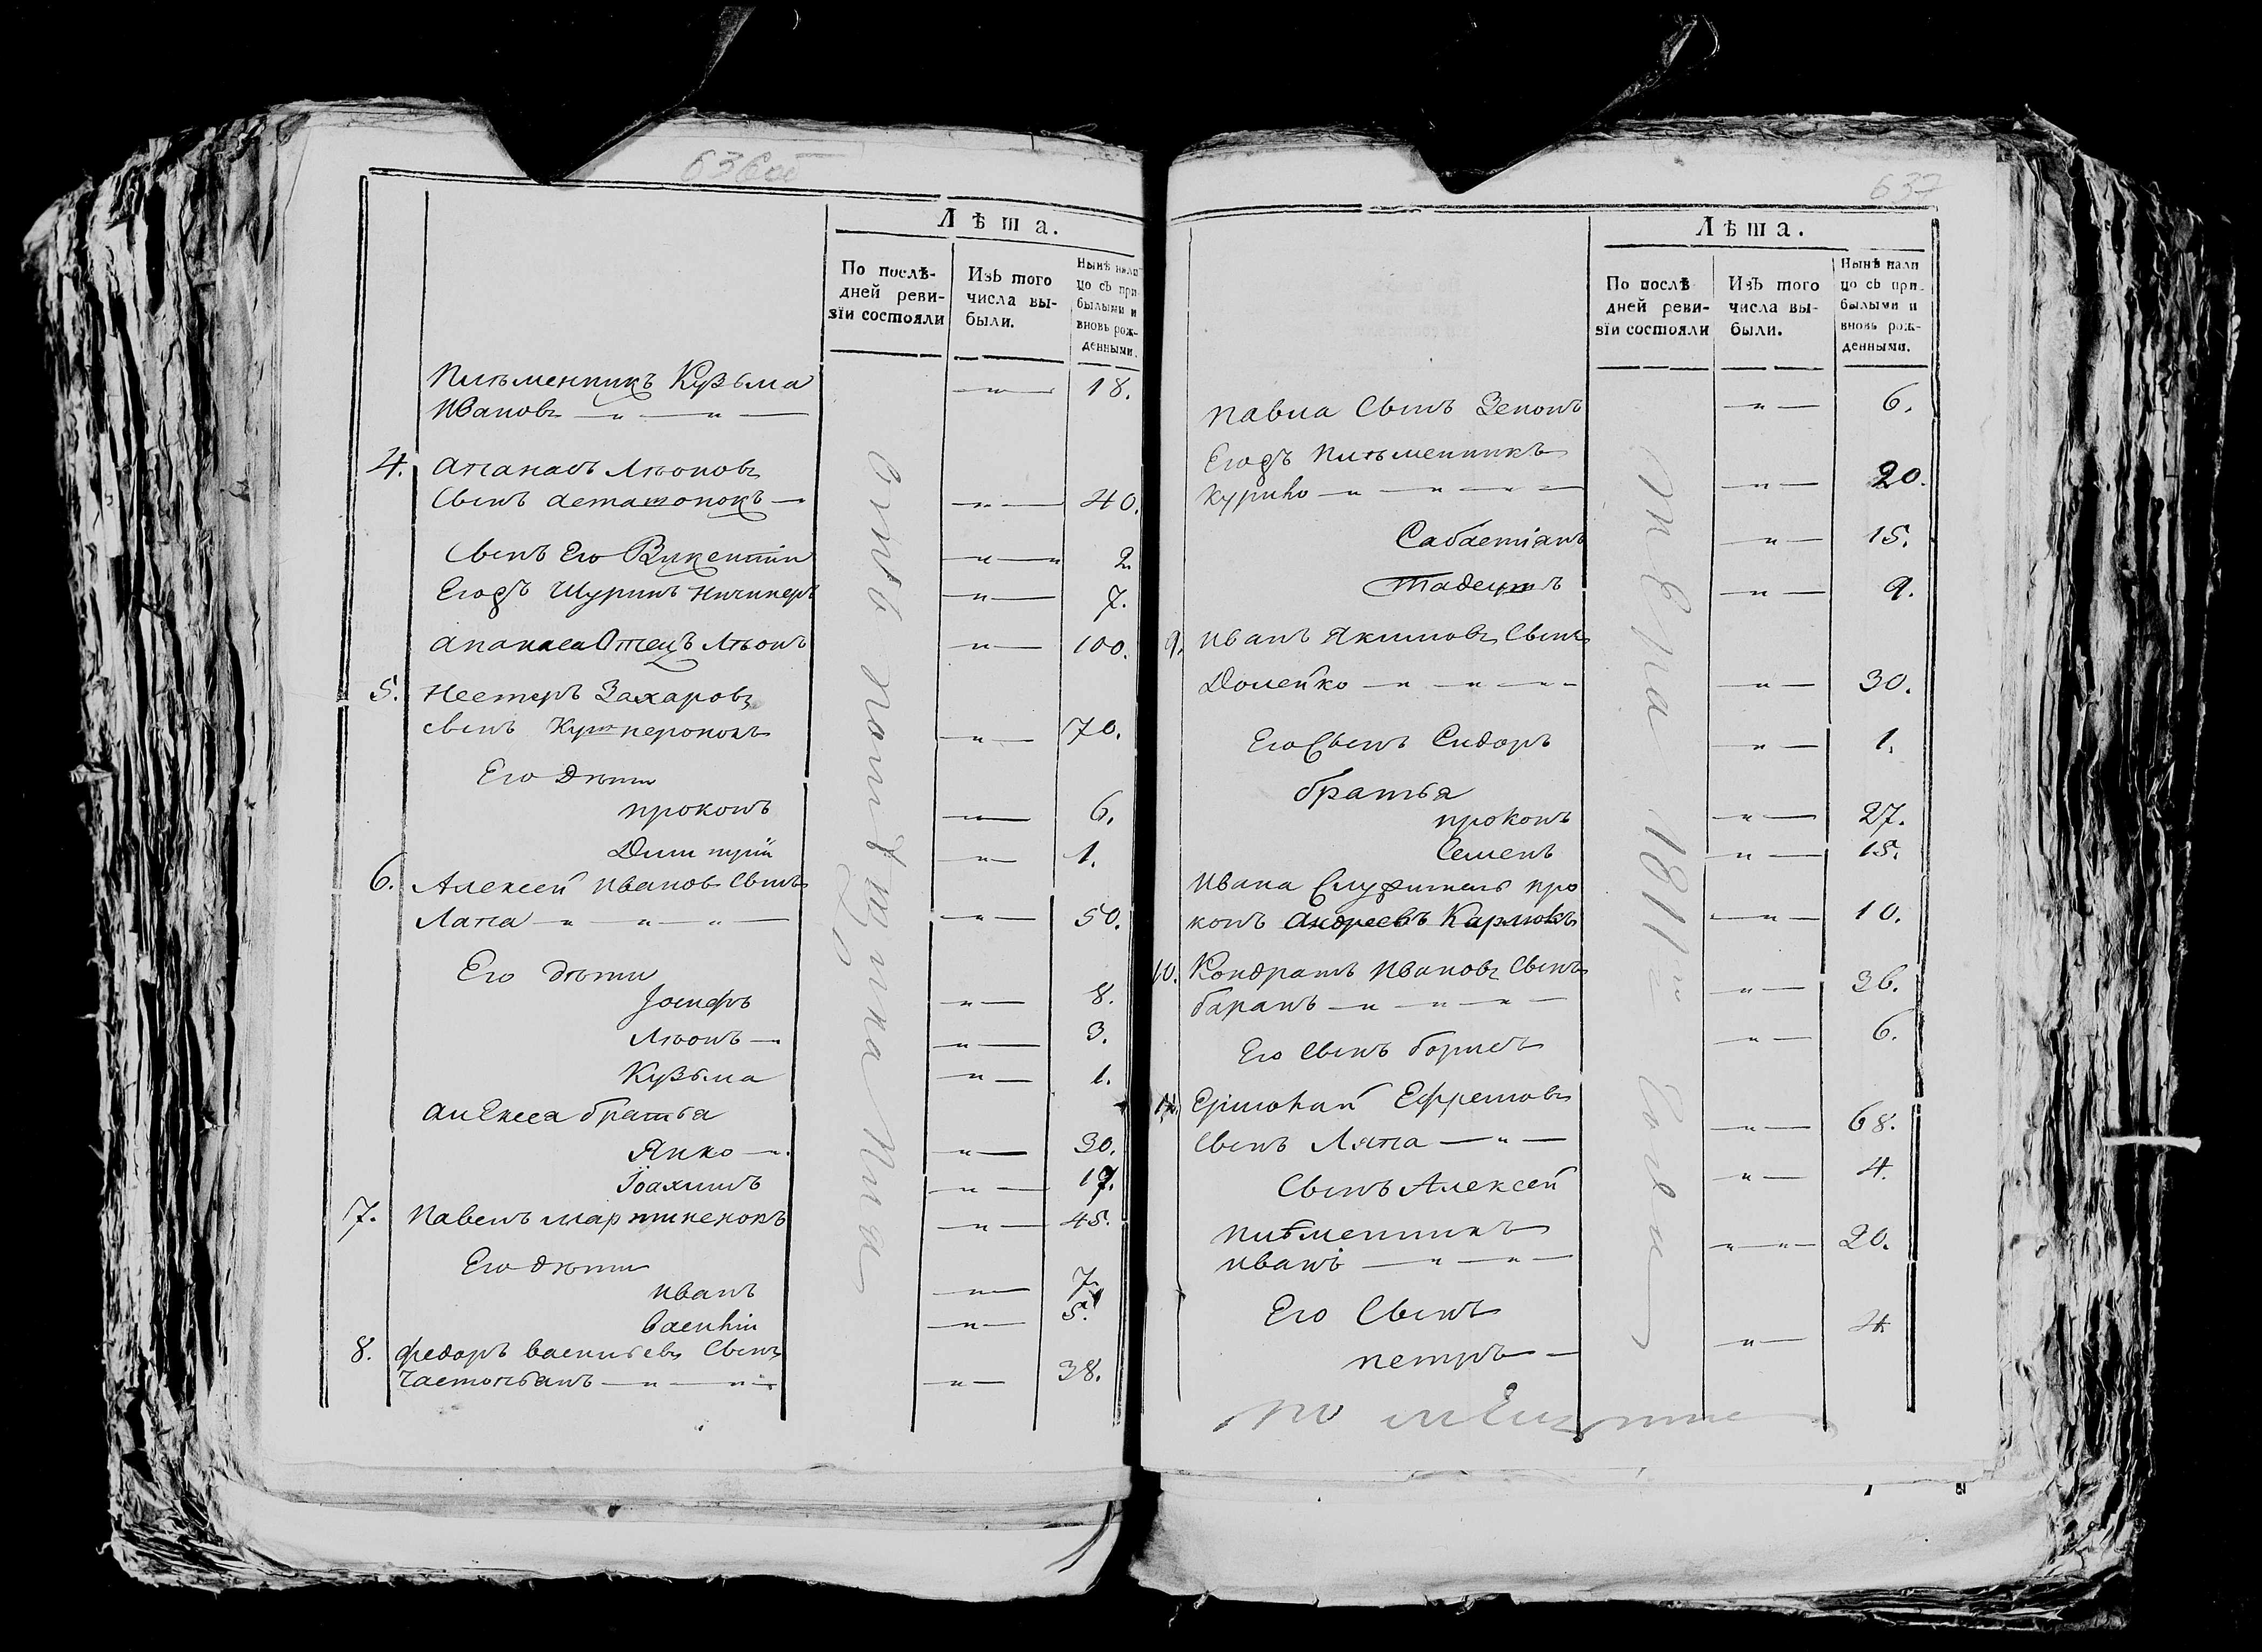 636 об
Лѣта.
По послѣ-
дней реви-
зіи состояли
Изъ того
числа вы-
были.
Нынѣ нали
цо съ при-
былыми и
вновь рож-
денными.
Питьменникъ Кузьма 18.
Ивановъ
4. Апанасъ Лѣоновъ
Сынъ 40.
Сынъ Его Викентіи 2
Егожъ Шуринъ 7.
Апанаса Отецъ Лѣонъ 100.
5. Нестеръ Захаровъ
сынъ 70.
Его Дѣти
прокопъ 6.
Димитрій 1.
6. Алексей Ивановъ Сынъ
Лапа 50.
Его дѣти
Іосифъ 8.
Лѣонъ 3.
Кузьма 1.
алЕксея братья
Янко 30.
Іоахимъ 17.
7. Павелъ мартиненокъ 45.
Его дѣти
иванъ 7.
Василій 5.
8. федоръ васильевъ Сынъ
38.
637
Лѣта.
По послѣ
дней реви-
зіи состояли
Изъ того
числа вы-
были.
Нынѣ нали
цо съ при-
былыми и
вновь рож-
денными.
Павла Сынъ Зенонъ 6.
Егожъ Питьменникъ
Курило 20.
Сабастіанъ 15.
Тадеушъ 9.
9. Иванъ Якимовъ Сынъ
Долейко 30.
Его Сынъ Сидоръ 1.
братья
прокопъ 27.
Семенъ 15.
Ивана Служитель про
копъ Андреевъ Карлюкъ 10.
10. Кондратъ Ивановъ Сынъ
баранъ 36.
Его Сынъ борисъ 6.
11. Ермолай Ефремовъ
Сынъ Лапа 68.
Сынъ Алексей 4.
питменникъ
иванъ 20.
Его Сынъ
петръ 4
1811